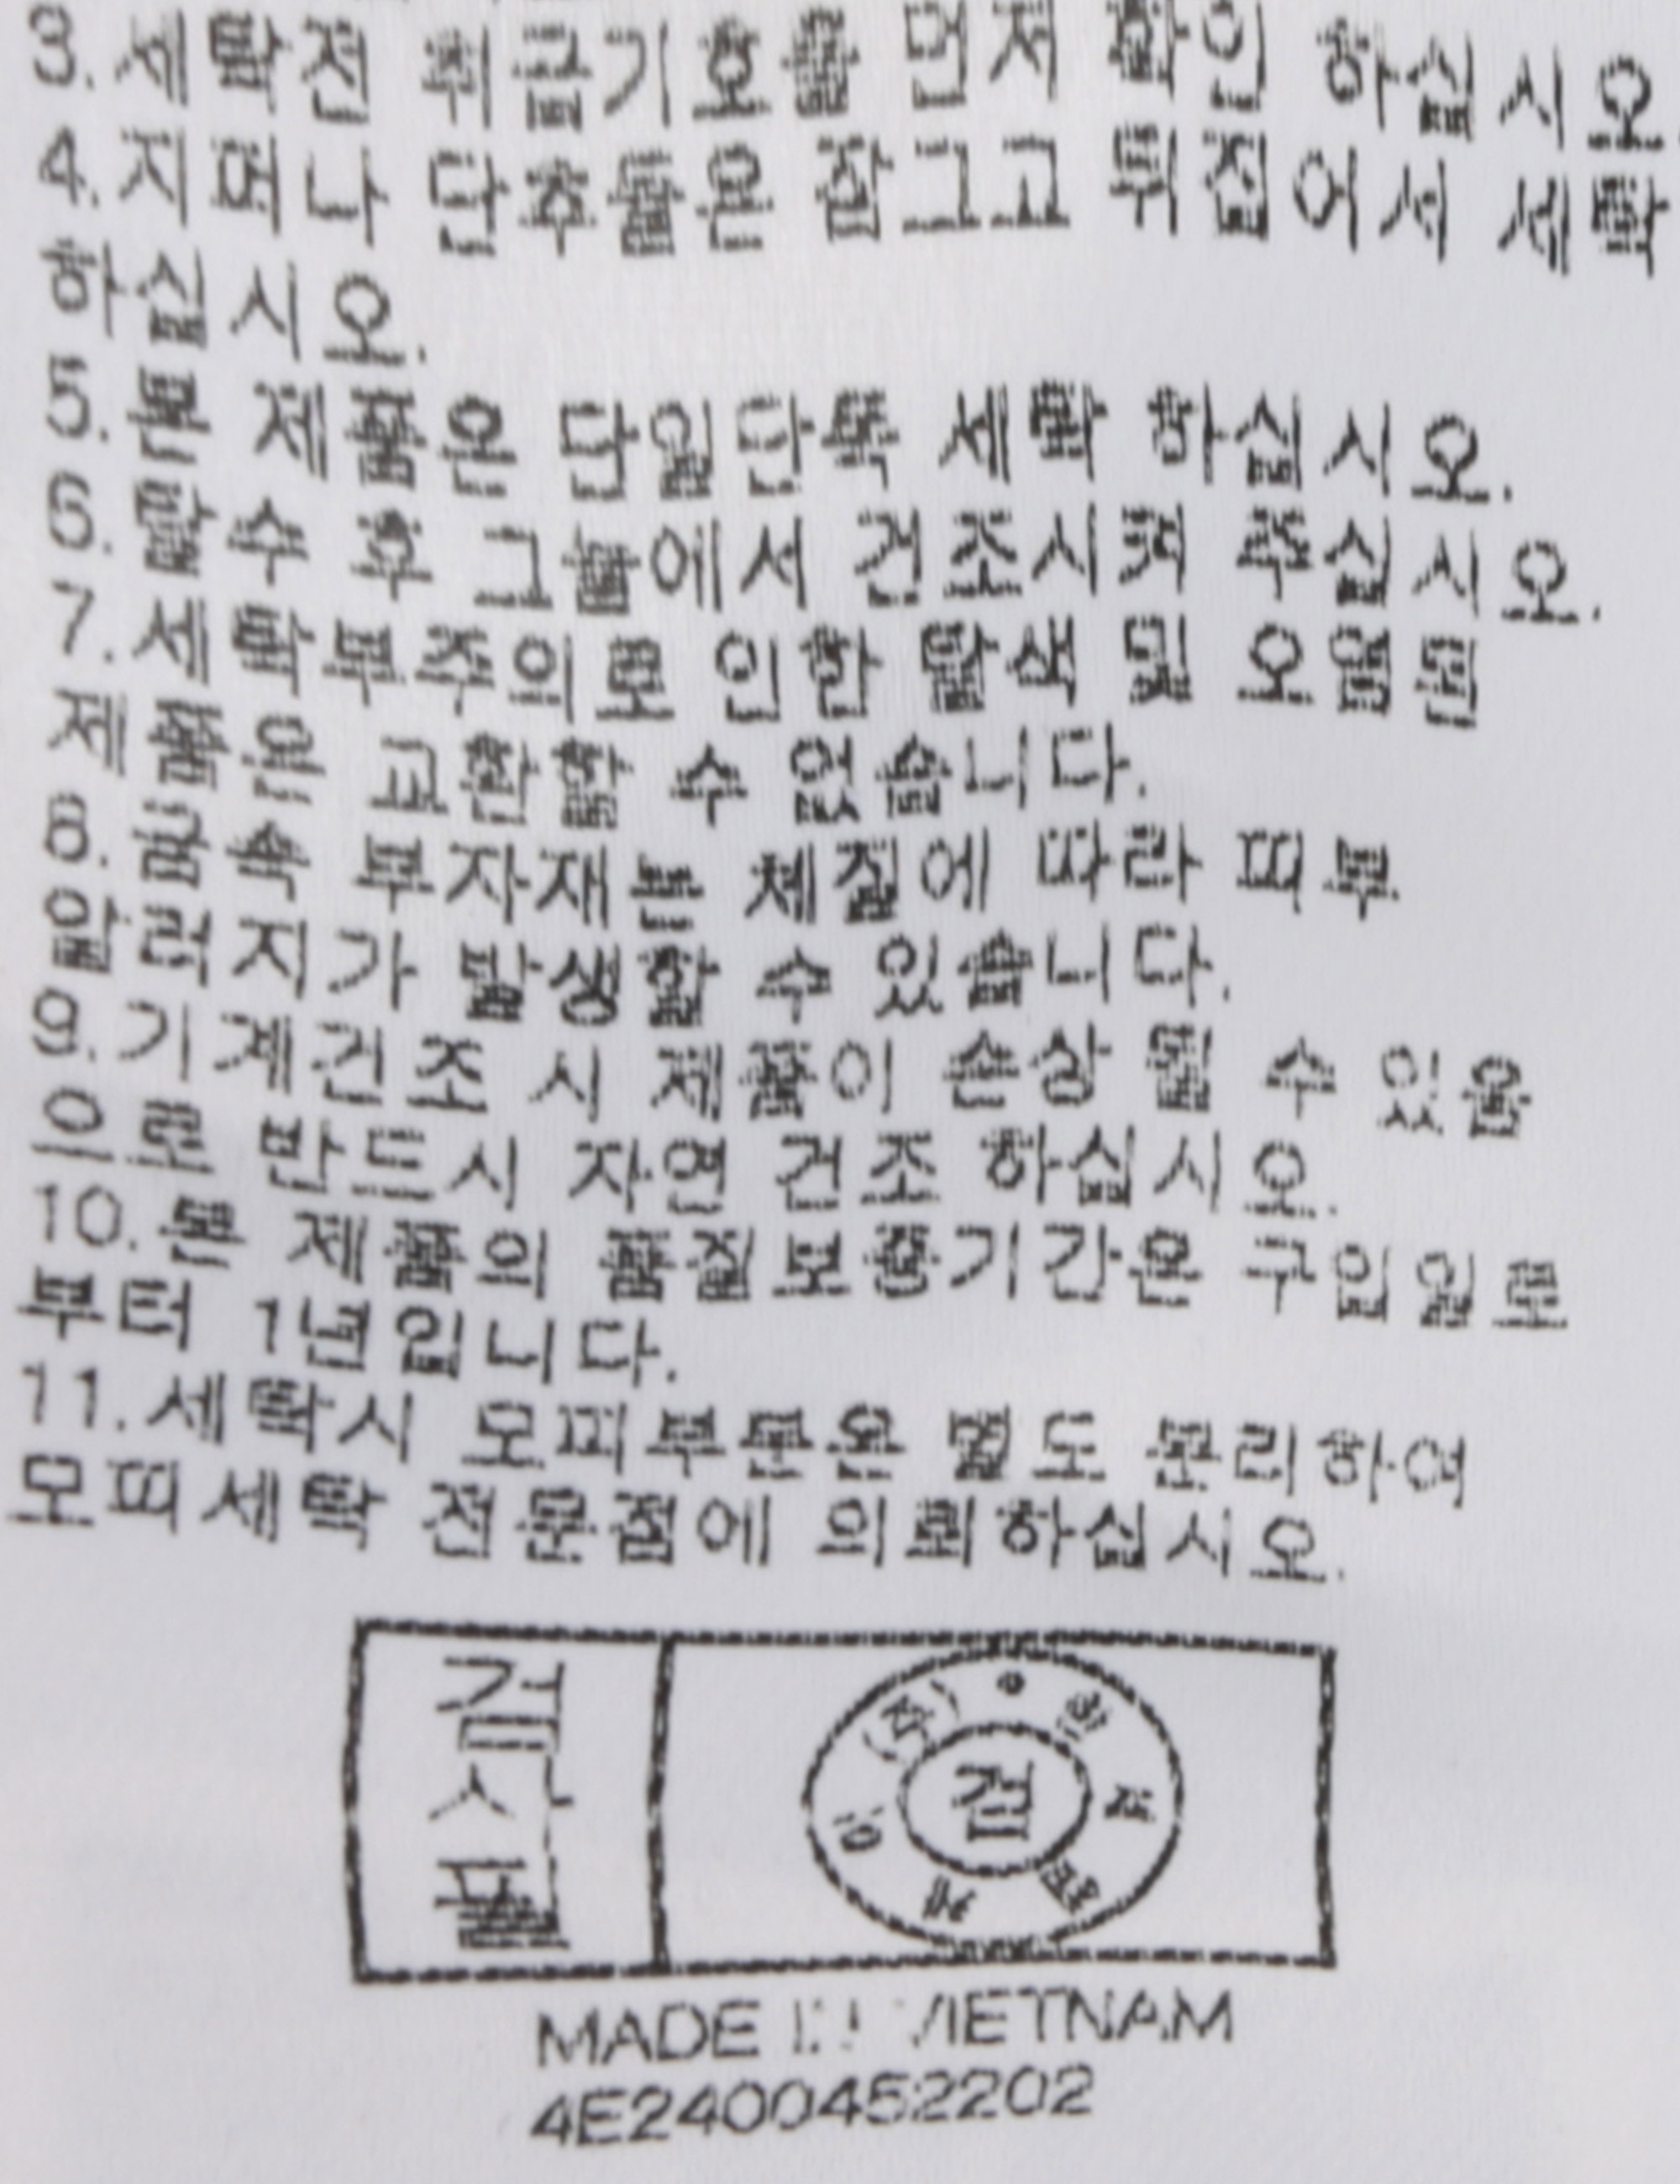 3.세탁전 취급기호를 먼저 확인 하십시오
4.지퍼나 단추들은 잠그고 뒤집어서 세탁
하십시오.
5.본 제품은 단일단독 세탁 하십시오.
6.탈수 후 그늘에서 건조시켜 주십시오.
7.세탁부주의로 인한 탈색 및 오염된
제품은 교환할 수 없습니다.
8.금속 부자재는 체질에 따라 피부
알러지가 발생할 수 있습니다.
9.기계건조 시 제품이 손상 될 수 있음
으로 반드시 자연 건조 하십시오.
10.본 제품의 품질보증기간은 구입일로
부터 1년입니다.
11.세탁시 모피부분은 별도 분리하여
모피세탁 전문점에 의뢰하십시오.
검사필
(주)
검
MADE IN VIETNAM
4E2400452202